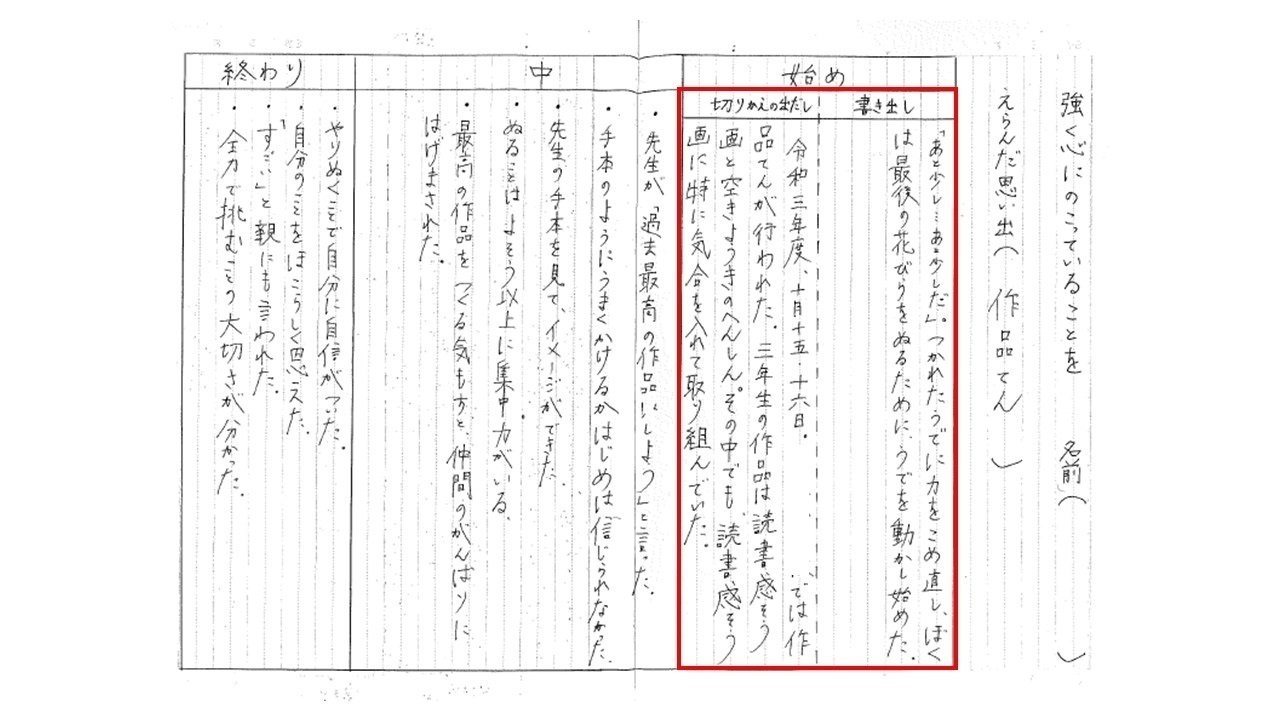 強く心にのこっていることを　名前（　　）
えらんだ思い出（　作品てん　）
始め
書き出し
「あと少し…あと少しだ。」つかれたうでに力をこめ直し、ぼく
は最後の花びらをぬるために、うでを動かし始めた。
切りかえの出だし
令和三年度、十月十五・十六日。　では作
品てんが行われた。三年生の作品は読書感そう
画と空きようきのへんしん。その中でも、読書感そう
画に特に気合を入れて取り組んでいた。
中
・先生が「過去最高の作品にしよう」と言った。
・手本のようにうまくかけるかはじめは信じられなかった。
・先生の手本を見て、イメージができた。
・ぬることはよそう以上に集中力がいる。
・最高の作品をつくる気もちと、仲間のがんばりに
はげまされた。
終わり
・やりぬくことで自分に自信がついた。
・自分のことをほこらしく思えた。
・「すごい」と親にも言われた。
・全力で挑むことの大切さが分かった。